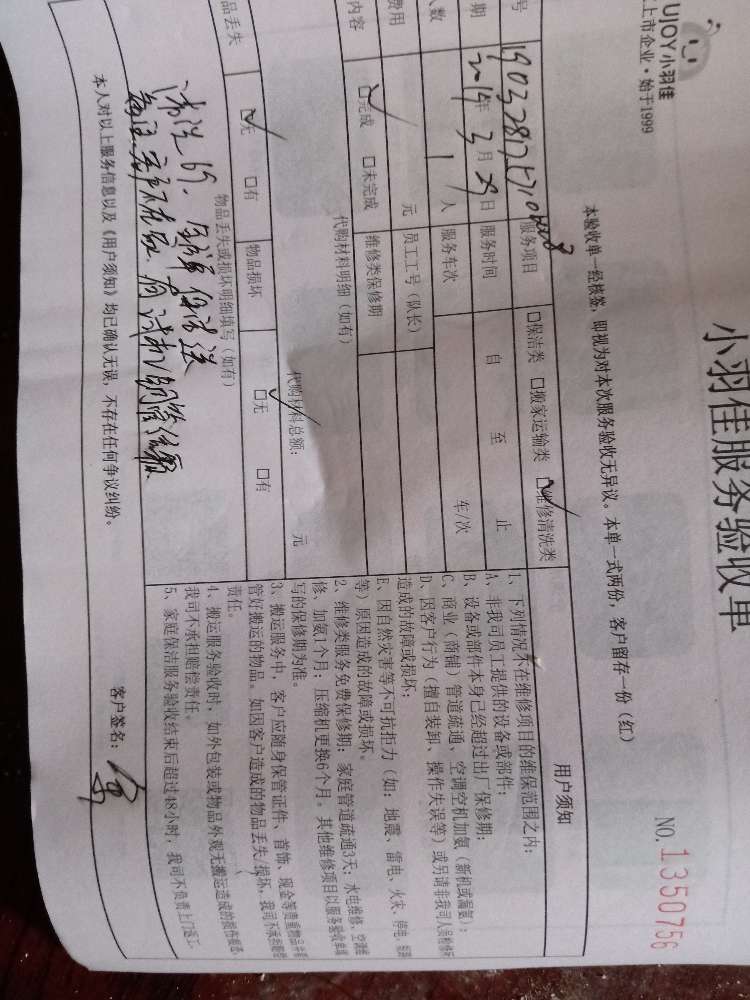 UJOY小羽佳
上市企业·始于1999
小羽佳服务验收单
NO. 1350756
本验收单一经核签，即视为对本次服务验收无异议。本单一式两份，客户留存一份（红）
号
服务项目 □保洁类 □搬家运输类 ☑维修清洗类
期 2019年3月29日 服务时间 自 至 止
人数 1人 服务车次 车/次
费用 元 员工工号（队长）
内容 ☑完成 □未完成 维修类保修期
代购材料明细（如有）
代购材料总额： 元
品丢失 ☑无 □有 物品损坏 ☑无 □有
物品丢失或损坏明细填写（如有）
本人对以上服务信息以及《用户须知》均已确认无误，不存在任何争议纠纷。
客户签名：
用户须知
1、下列情况不在维修项目的维保范围之内：
A、非我司员工提供的设备或部件；
B、设备或部件本身已经超过出厂保修期；
C、商业（商铺）管道疏通、空调空机加氨（新机或漏氨）；
D、因客户行为（擅自装卸、操作失误等）或另请非我司人员检修所
造成的故障或损坏；
E、因自然灾害等不可抗拒力（如：地震、雷电、火灾、停电、
等）原因造成的故障或损坏。
2、维修类服务免费保修期：家庭管道疏通3天；水电维修、空调维
修、加氨1个月；压缩机更换6个月。其他维修项目以服务验收单填
写的保修期为准。
3、搬运服务中，客户应随身保管证件、首饰、现金等贵重物品并看
管好搬运的物品。如因客户造成的物品丢失/损坏，我司不承担赔偿
责任。
4、搬运服务验收时，如外包装或物品外观无搬运造成的损伤痕迹，
我司不承担赔偿责任。
5、家庭保洁服务验收结束后超过48小时，我司不负责上门返工